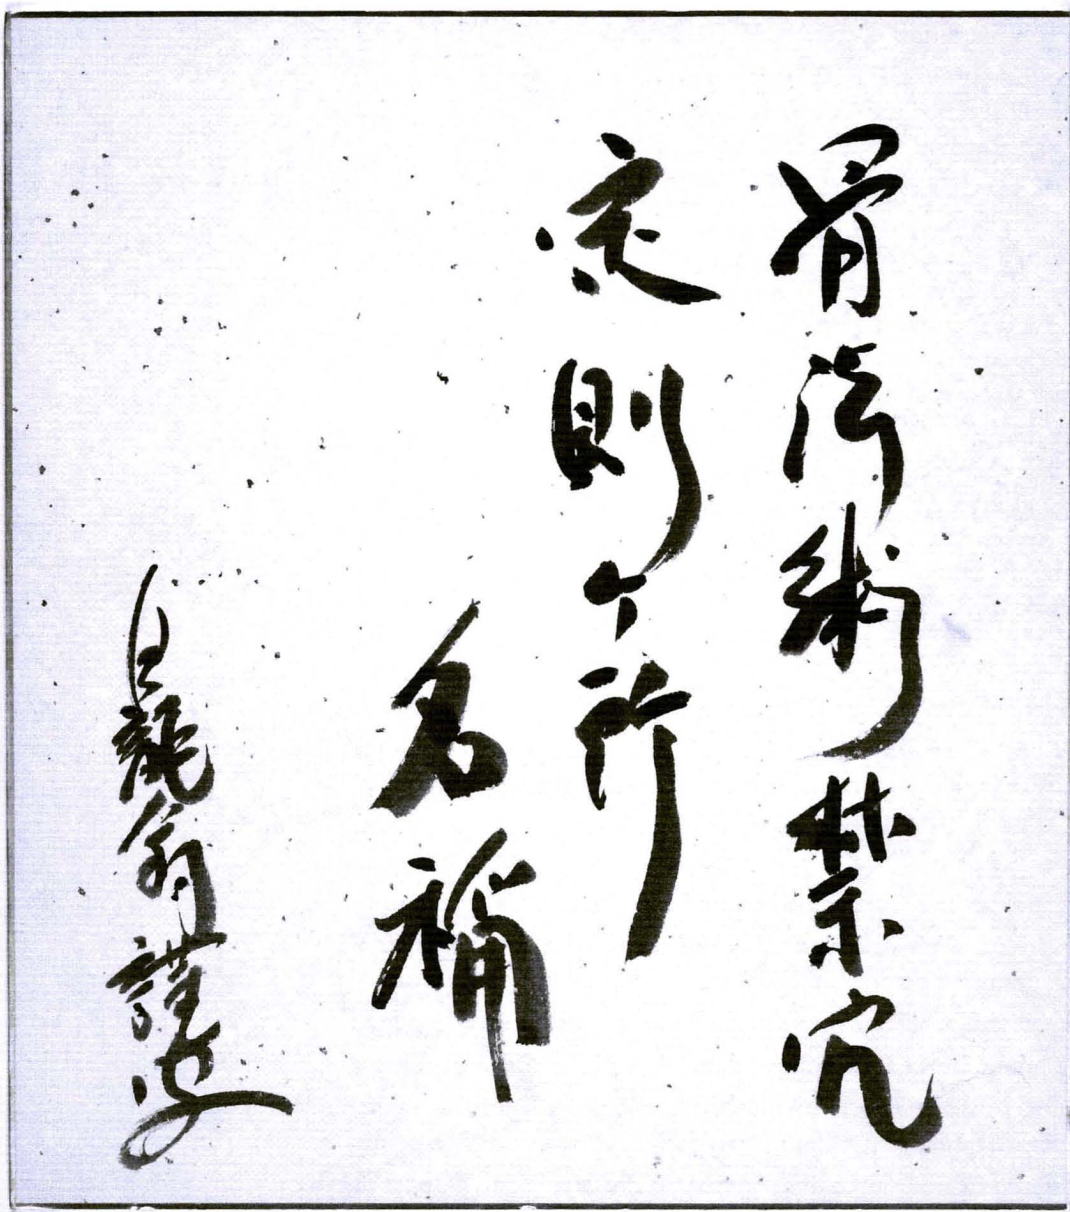 骨法術禁穴
定則ケ所
名称
白龍翁謹字